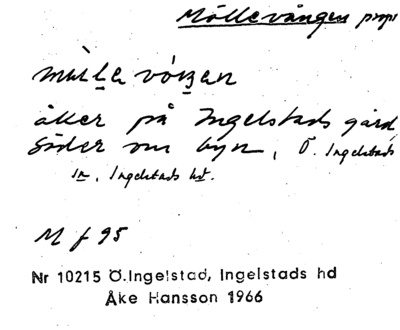 Möllevången propr
åker på Ingelstads gård
söder om byn, Ö. Ingelstads
sn, Ingelstads hd.
M f 95
Nr 10215 Ö.Ingelstad, Ingelstads hd
Åke Hansson 1966